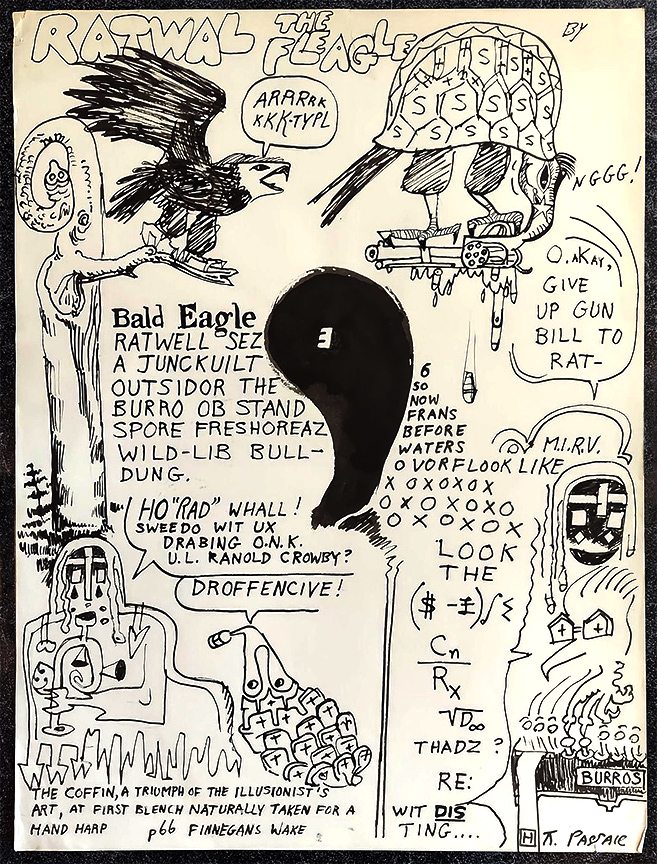 RATWAL THE FLEAGLE
BY
ARRRRK
KKK-TYPL
NGGG!
O.KAY,
GIVE
UP GUN
BILL TO
RAT-
Bald Eagle
RATWELL SEZ
A JUNCKUILT
OUTSIDOR THE
BURRO OB STAND
SPORE FRESHOREAZ
WILD-LIB BULL-
DUNG.
E
6
SO
NOW
FRANS
BEFORE
WATERS
OVORFLOOK LIKE
X O X O X O X
O X O X O X O
O X O X O X
M.I.R.V.
HO "RAD" WHALL!
SWEEDO WIT UX
DRABING O.N.K.
U.L. RANOLD CROWBY?
DROFFENCIVE!
LOOK
THE
Cn
Rx
√D∞
THADZ?
RE:
WIT DIS
TING....
BURROS
THE COFFIN, A TRIUMPH OF THE ILLUSIONIST'S
ART, AT FIRST BLENCH NATURALLY TAKEN FOR A
HAND HARP p66 FINNEGANS WAKE
H
S S S S S S S S